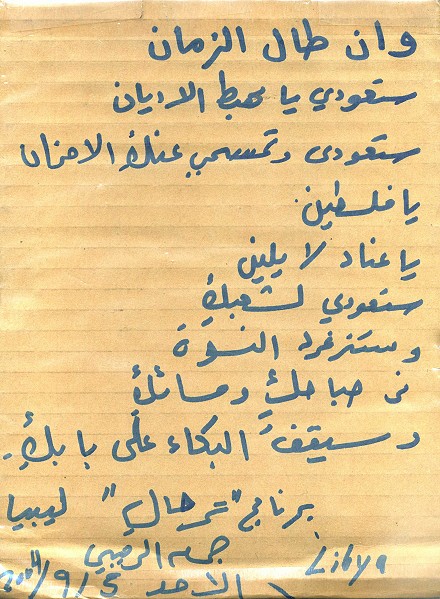 وان طال الزمان
ستعودي يا مهبط الاديان
ستعودى وتمسحي عنكِ الاحزان
يا فلسطين
يا عناد لا يلين
ستعودي لشعبكِ
وستزغرد النسوة
في صباحكِ ومسائكِ
وسيقف البكاء على بابكِ.
برنامج "ترحال" ليبيا
Libya
الاحد 5/9/2004